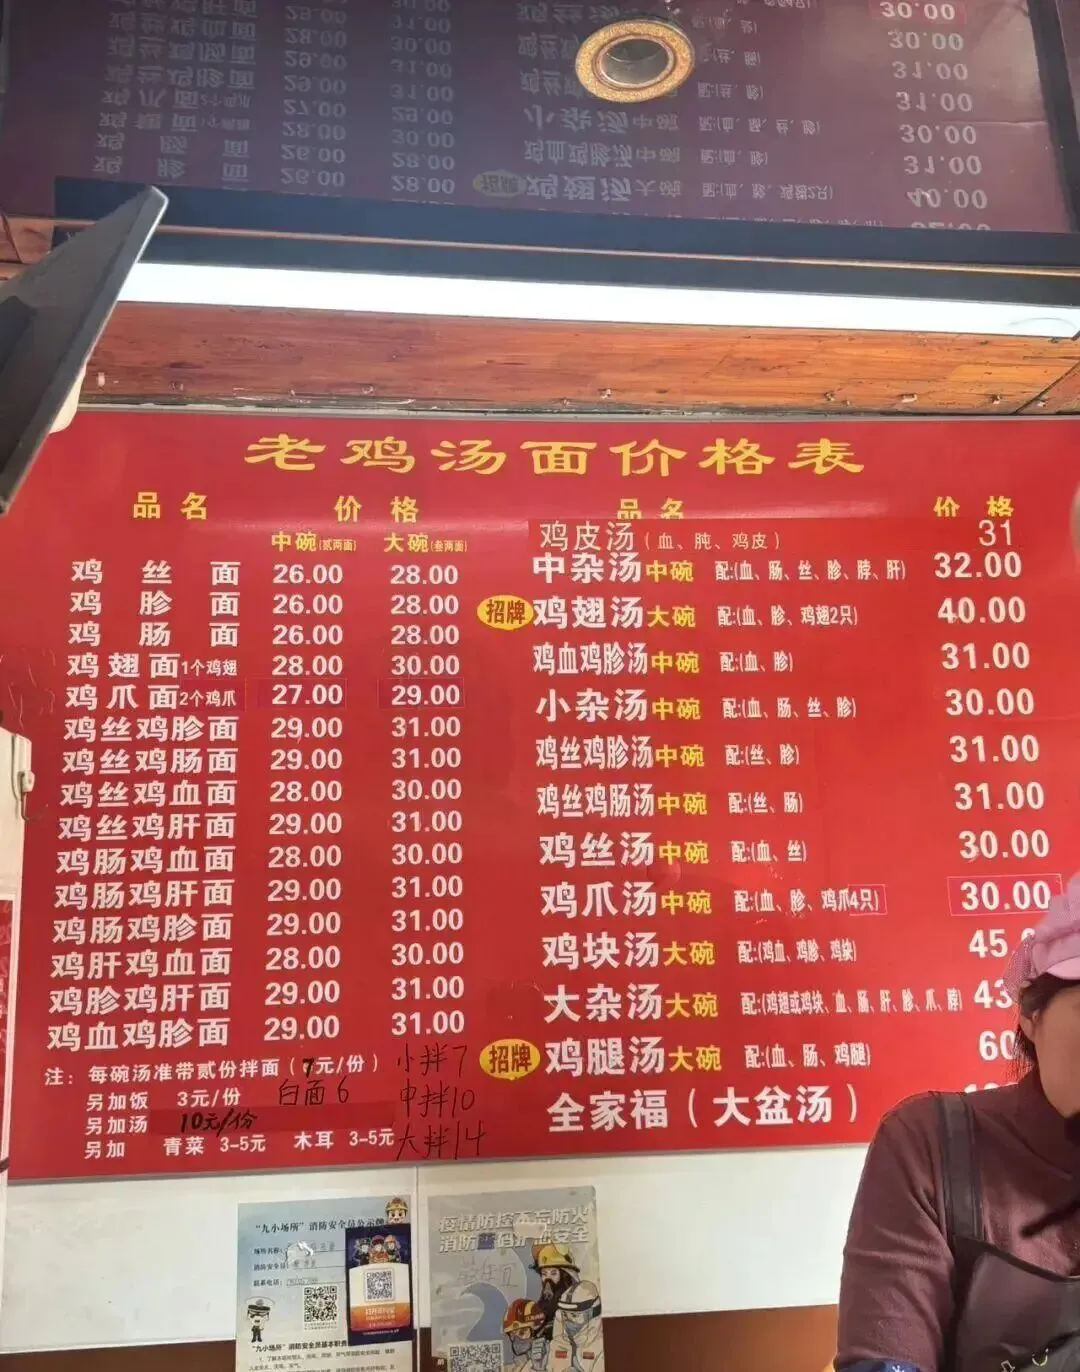 老鸡汤面价格表
品名 价格
中碗(贰两面) 大碗(叁两面)
鸡丝面 26.00 28.00
鸡胗面 26.00 28.00
鸡肠面 26.00 28.00
鸡翅面1个鸡翅 28.00 30.00
鸡爪面2个鸡爪 27.00 29.00
鸡丝鸡胗面 29.00 31.00
鸡丝鸡肠面 29.00 31.00
鸡丝鸡血面 28.00 30.00
鸡丝鸡肝面 29.00 31.00
鸡肠鸡血面 28.00 30.00
鸡肠鸡肝面 29.00 31.00
鸡肠鸡胗面 29.00 31.00
鸡肝鸡血面 28.00 30.00
鸡胗鸡肝面 29.00 31.00
鸡血鸡胗面 29.00 31.00
注: 每碗汤准带贰份拌面（7元/份） 小拌7
另加饭 3元/份 白面6 中拌10
另加汤 10元/份
另加 青菜 3-5元 木耳 3-5元 大拌14
品名 价格
鸡皮汤（血、肫、鸡皮） 31
中杂汤中碗 配:(血、肠、丝、胗、脖、肝) 32.00
招牌 鸡翅汤大碗 配:(血、胗、鸡翅2只) 40.00
鸡血鸡胗汤中碗 配:(血、胗) 31.00
小杂汤中碗 配:(血、肠、丝、胗) 30.00
鸡丝鸡胗汤中碗 配:(丝、胗) 31.00
鸡丝鸡肠汤中碗 配:(丝、肠) 31.00
鸡丝汤中碗 配:(血、丝) 30.00
鸡爪汤中碗 配:(血、胗、鸡爪4只) 30.00
鸡块汤大碗 配:(鸡血、鸡胗、鸡块) 45
大杂汤大碗 配:(鸡翅或鸡块、血、肠、肝、胗、爪、脖) 43
招牌 鸡腿汤大碗 配:(血、肠、鸡腿) 60
全家福（大盆汤）
“九小场所”消防安全员公示牌
场所名称:
消防安全员:
联系电话:
“九小场所”消防安全员基本职责
疫情防控不忘防火
消防
安全